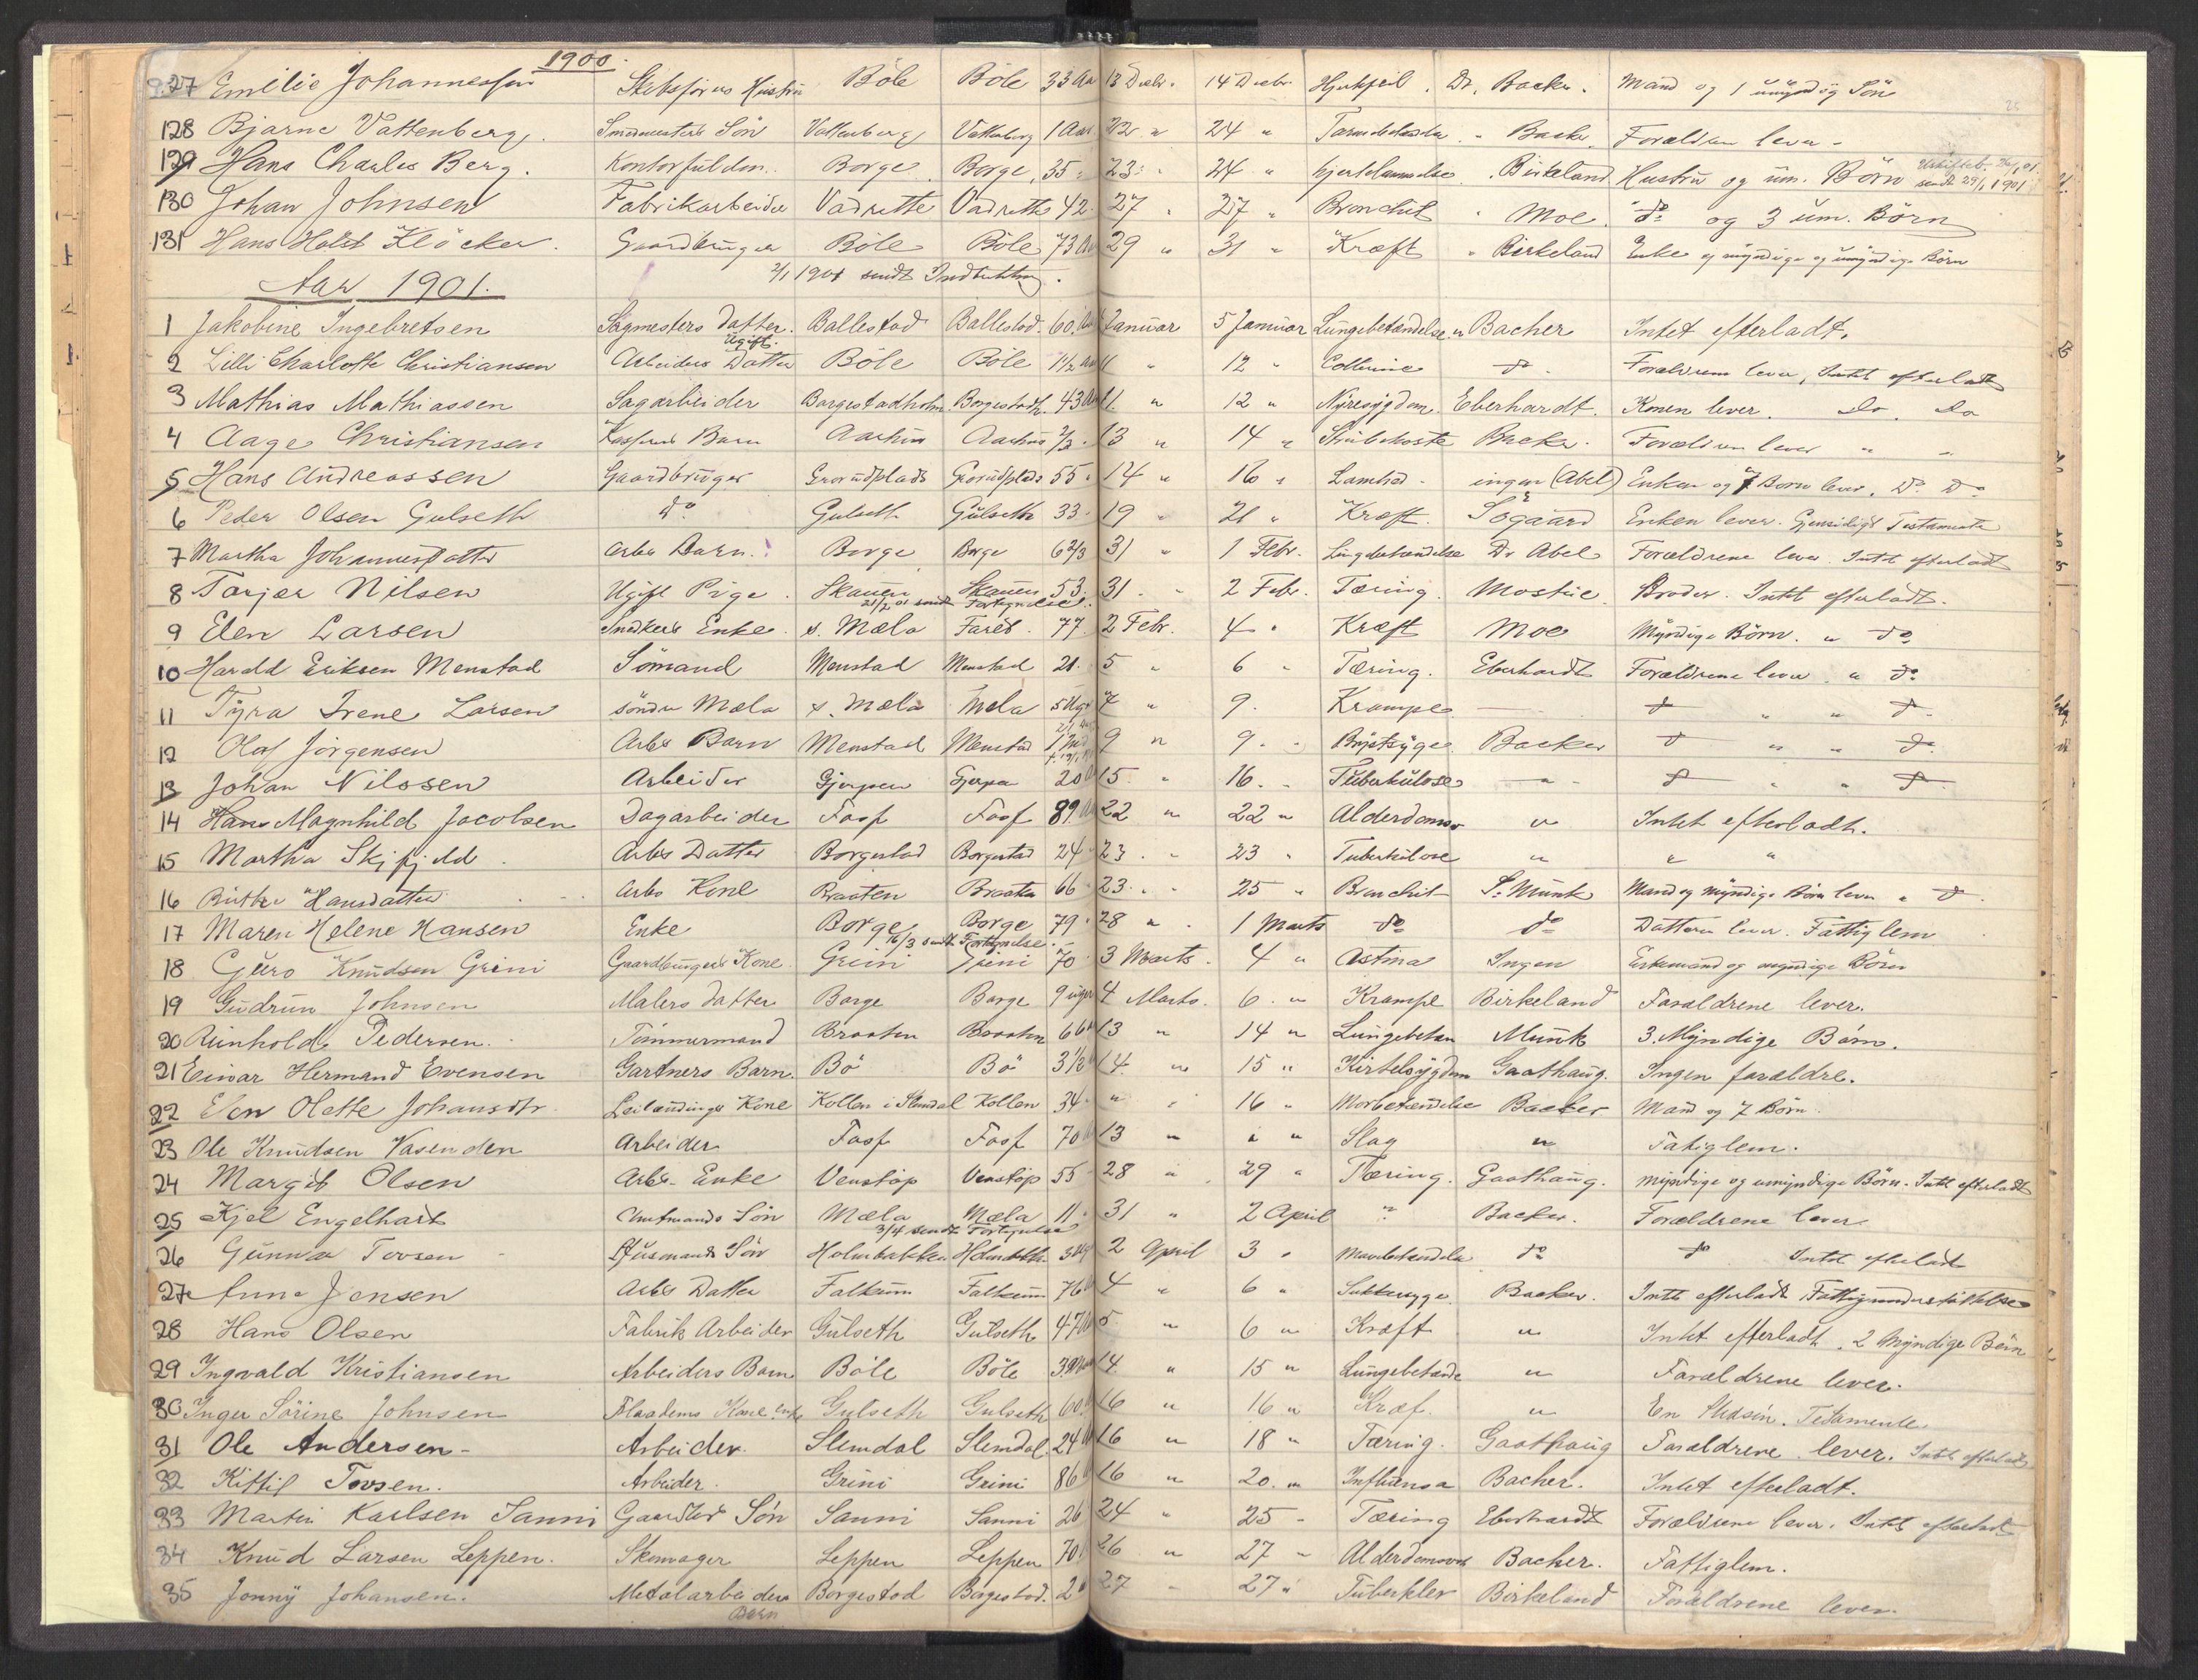 1900.
127 Emilie Johannessen Skibsförers Hustru Böle Böle 33 Aar 13 Decbr. 14 Decbr. Hjertefeil. Dr. Backer. Mand og 1 umyndig Sön
128 Bjarne Vattenberg. Smedmesters Sön Vattenberg Vattenberg 1 Aar. 22 " 24 " " Backer Forældrene lever -
129 Hans Charles Berg. Borge Borge 35 " 23 " 24 " Hjertelammelse " Birkeland Hustru og um. Börn sendt 29/1 1901
130 Johan Johnsen Fabrikarbeider Vadrette Vadrette 42 " 27 " 27 " Bronchit " Moe do og 3 um. Börn
131 Hans Holst Klöcker. Gaardbruger Böle Böle 73 Aar 29 " 31 " Kræft " Birkeland Enke og myndige og umyndige Börn
2/1 1901 sendt
Aar 1901.
1 Jakobine Ingebretsen Sagmesters Datter. Ugift. Ballestad Ballestad. 60. Aar Januar 5 Januar Lungebetændelse " Backer Intet efterladt.
2 Lilli Charlotte Christiansen Arbeiders Datter Böle Böle 1 1/2 Aar 11 " 12 " Collerine do. Forældrene lever, Intet efterladt
3 Mathias Mathiassen Sagarbeider Borgestadholm Borgestadh. 43 Aar 11. " 12 " Nyresygdom. Eberhardt. Konen lever. Do. Do
4 Aage Christiansen Barn Aarhus Aarhus 2/3 - 13 " 14 " Strubehoste Backer. Forældrene lever " "
5 Hans Andreassen Gaardbruger Grorudplads Grorudplads 55 " 14 " 16 " Lamhed - ingen (Abel) Enken og 7 Börn lever. Do Do
6 Peder Olsen Gulseth Do Gulseth Gulseth 33 - 19 " 21 " Kræft. Sögaard Enken lever. Gjensidigt Testamente
7 Martha Johannesdatter Arbs Barn. Borge Borge 6 2/3 31 " 1 Febr. Lungebetændelse Dr Abel Forældrene lever. Intet efterladt
8 Tarjer Nilsen Ugift Pige. Skauen Skauen 53. 31. " 2 Febr. Tæring. Mostue Broder. Intet efterladt.
21/2 01 sendt Fortegnelse.
9 Elen Larsen Snedkers Enke. s. Mæla Faret. 77. 2 Febr. 4 " Kræft Moe Myndige Börn. " do
10 Harald Eriksen Menstad Sömand Menstad Menstad 21. 5 " 6 " Tæring. Eberhardt Forældrene lever. " do
11 Tyra Irene Larsen söndre Mæla s. Mæla Mæla 5 Uger 7 " 9. Krampe — do " " do.
12 Olaf Jörgensen Arbs Barn Menstad Menstad 9 " 9. " Brystsyge. Backer do " " do.
13 Johan Nilssen Arbeider Gjerpen Gjerpen 20 Aar 15. " 16. " Tuberkulose " do " " do
14 Magnhild Jacobsen Dagarbeider Foss Foss 89. Aar 22 " 22 " Alderdoms " Intet efterladt.
15 Martha Skifjeld. Arbs Datter Borgestad Borgestad 24 " 23. " 23 " Tuberkulose " " "
16 Hansdatter Arbs Kone Braaten Braaten 66 " 23. " 25 " Bronchit S. Munk Mand og myndige Börn lever " do.
17 Maren Helene Hansen Enke Borge Borge 79 " 28 " . 1 Marts do do Datteren lever. Fattiglem
16/3 sendt Fortegnelse.
18 Guro Knudsen Grini Gaardbrugers Kone. Grini Grini 70. 3 Marts. 4 " Astma Ingen Enkemand og myndige Börn
19 Gudrun Johnsen Malers Datter Borge Borge 9 uger 4 Marts. 6. " Krampe Birkeland Forældrene lever.
20 Reinholdt Pedersen. Tömmermand Braaten Braaten 66 Aar 13 " 14 " Lungebetæn Munk 3. Myndige Börn.
21 Einar Hermand Evensen Gartners Barn. Bö Bö 3 1/2 Aar 14 " 15 " Kirtelsygdom Gaathaug. Ingen forældre.
22 Elen Olette Johansdtr. Leilændings Kone Kollen i Slemdal Kollen 34 - " " 16 " Morbetændelse Backer Mand og 7 Börn.
23 Ole Knudsen Vasenden Arbeider Foss Foss 70 Aar 13 " " " Slag " Fatiglem.
24 Margit Olsen Arbs- Enke Venstöp Venstöp 55 - 28 " 29 " Tæring. Gaathaug. myndige og umyndige Börn. Intet efterladt
25 Kjel Engelhart Amtmands Sön Mæla Mæla 11. 31 " 2 April " Backer. Forældrene lever
3/4 sendt Fortegnelse
26 Gunnar Tovsen - Husmands Sön Holmbakken Holmbakken 2 April 3 " Mavebetændelse do do Intet efterladt
27 Anne Jensen Arbs Datter Falkum Falkum 76 Aar 4 " 6 " Sukkersyge. Backer. Intet efterladt Fattigunderstöttelse
28 Hans Olsen Fabrik Arbeider Gulseth Gulseth 47 Aar 5 " 6 " Kræft " Intet efterladt. 2 Myndige Börn
29 Ingvald Kristiansen Arbeiders Barn Böle Böle 14. " 15 " Lungebetænde " Forældrene lever.
30 Inger Sörine Johnsen Kone enke Gulseth Gulseth 60. 16 " 16 " Kræf. " En Stedsön. Testamente
31 Ole Andersen - Arbeider. Slemdal Slemdal. 24 Aar 16 " 18 " Tæring. Gaathaug Forældrene lever. Intet efterladt
32 Kittil Tovsen. Arbeider. Grini Grini 86 16 " 20. " Influensa Backer. Intet efterladt.
33 Martin Karlsen Sanni Gaardbr Sön Sanni Sanni 26 24 " 25 - Tæring Eberhardt Forældrene lever. Intet efterladt
34 Knud Larsen Leppen. Skomager Leppen Leppen 70 26 " 27 " Alderdomssvag Backer. Fattiglem.
35 Jonny Johansen. Metalarbeiders Barn Borgestad Borgestad. 2 " 27 - 27 " Tuberkler Birkeland Forældrene lever.